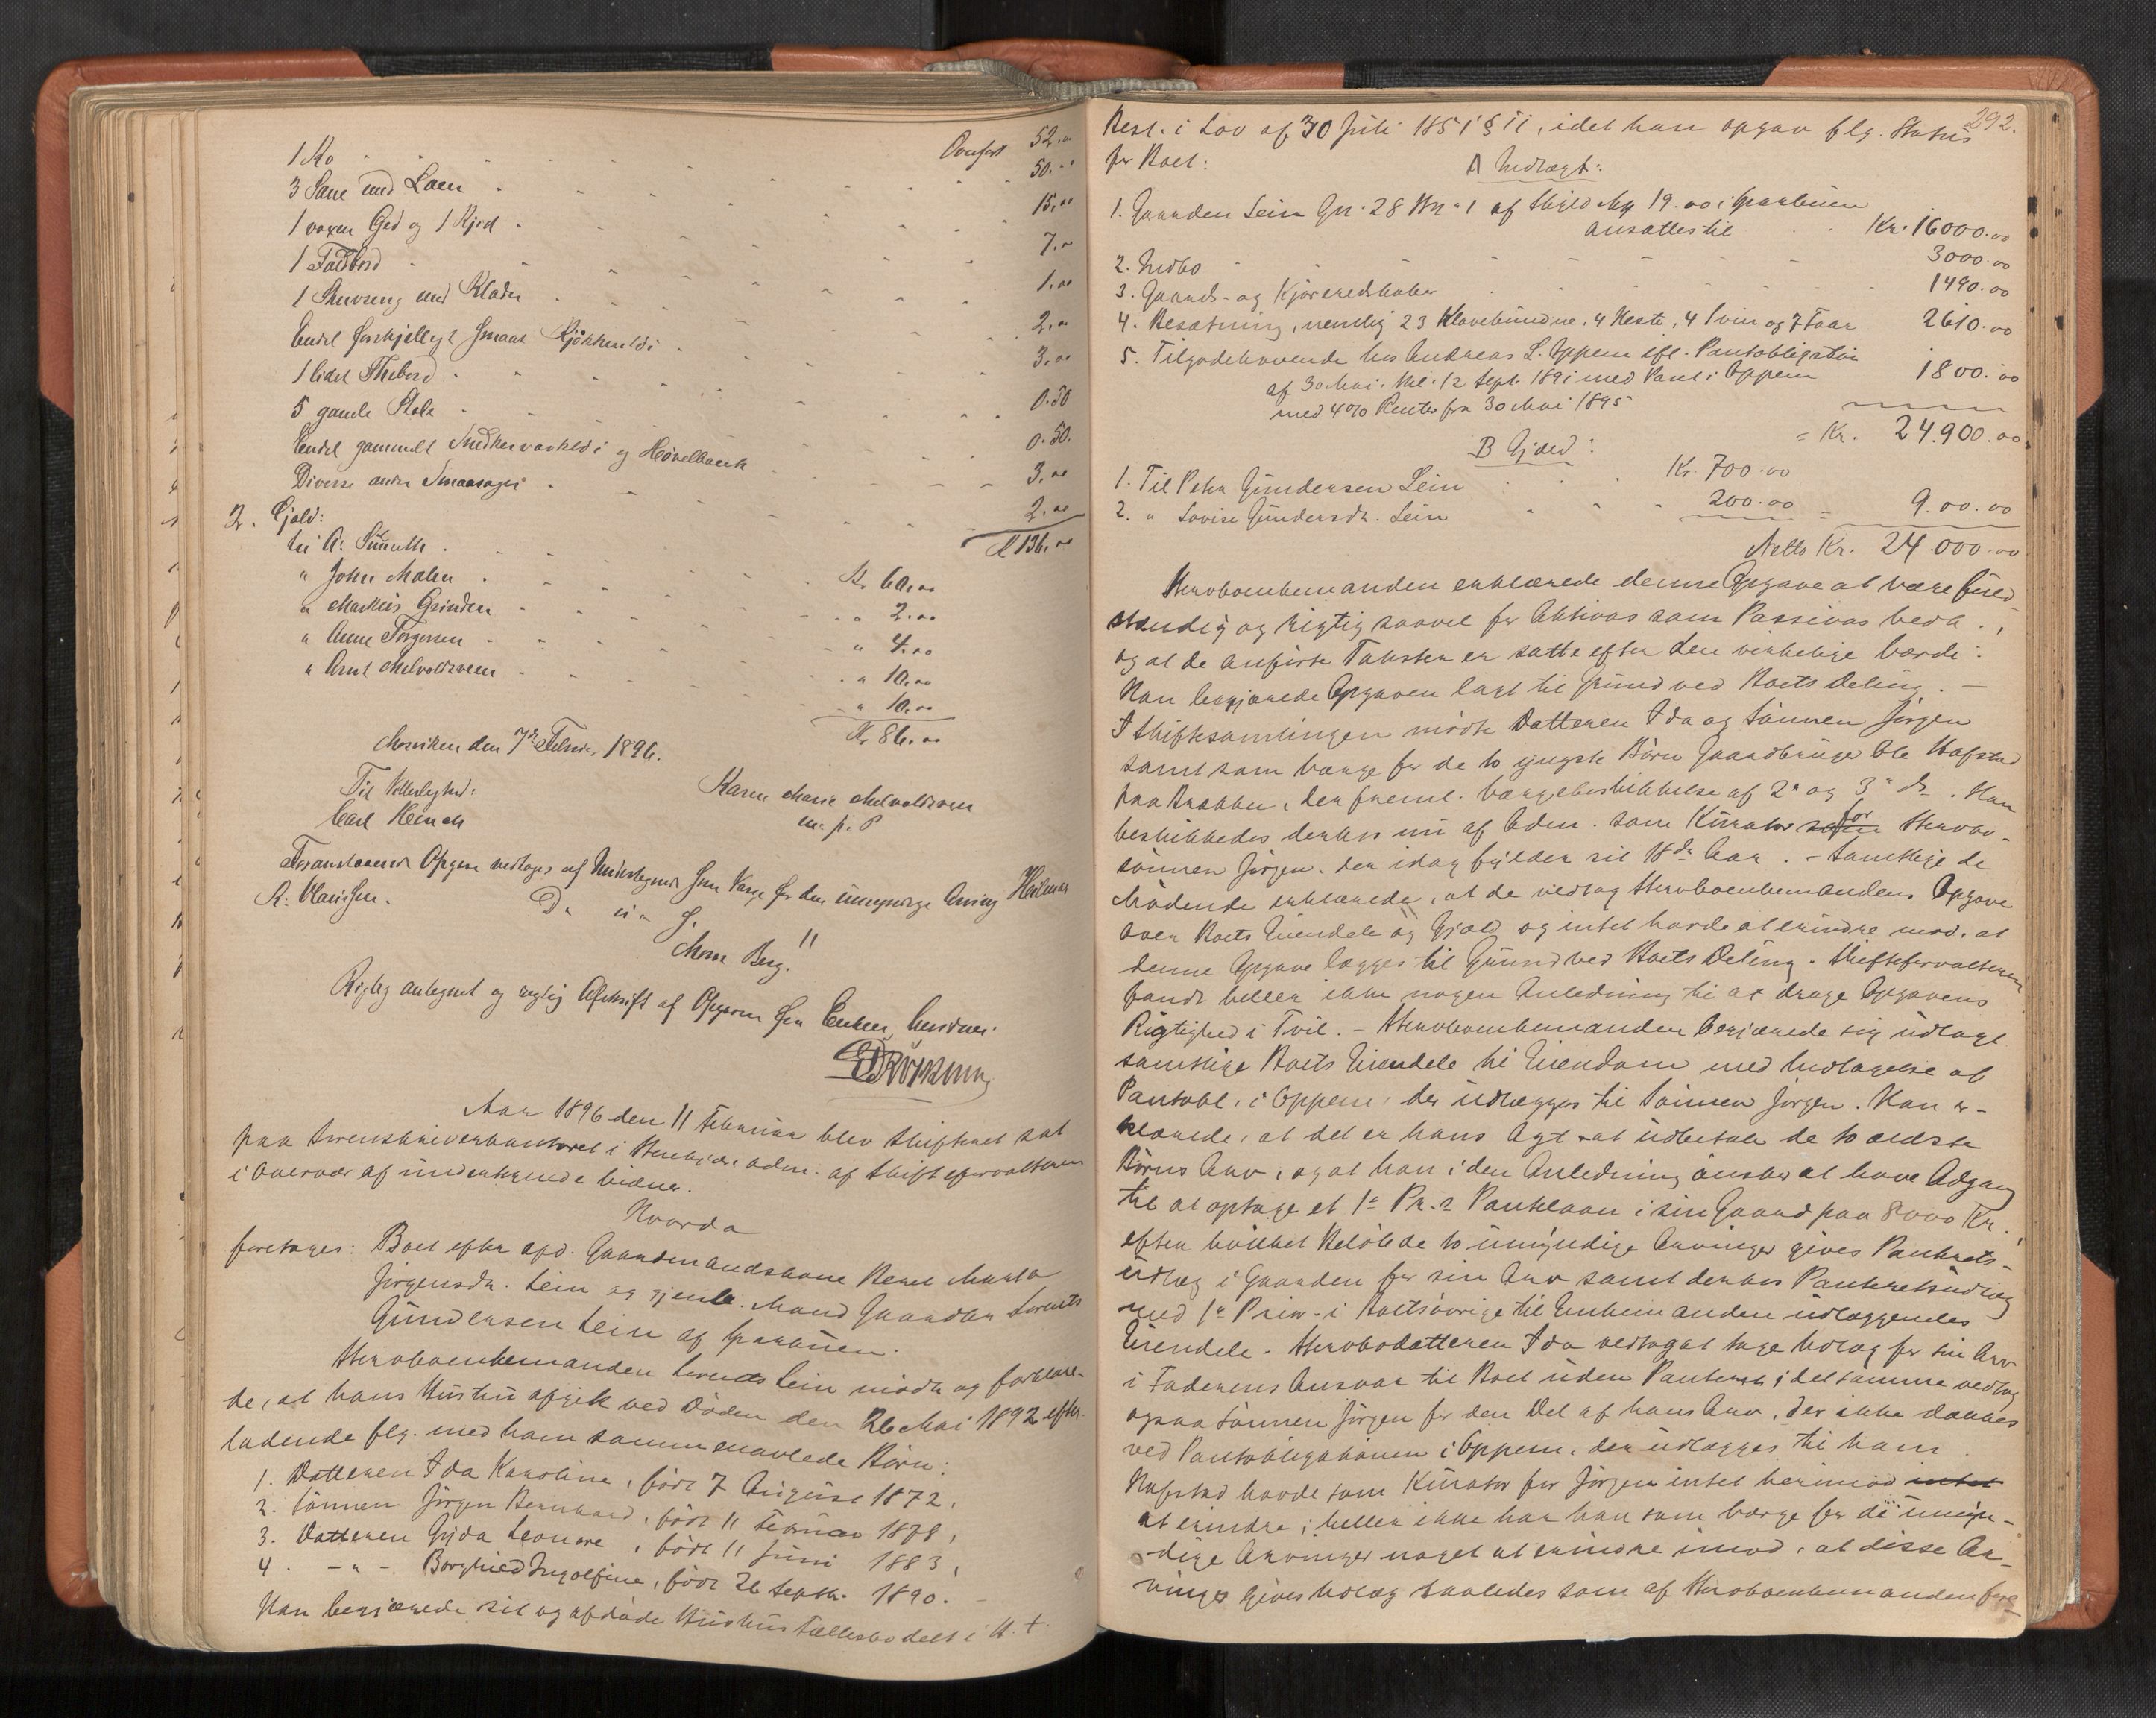 Overført 52.00
1 Ko . . . 50.00
3 Saue med Lam . . . 15.00
1 voxen Ged og 1 Kjed . . . 7.00
1 Faldbord . . . 1.00
1 med Klæder . . . 2.00
Endel forskjelligt smaat Kjøkkentøi . . . 3.00
1 lidet Thebord . . . 0.50
5 gamle Stole . . . 0.50.
Endel gammelt Snedkerværktøi og Høvelbænk . . . 3.00
Diverse andre Smaasager . . . 2.00
2. Gjæld: 136.00
til A: . . . Kr 60.00
" John Malen . . . " 2.00
" Markus Grinden . . . " 4.00
" Anne Torgersen . . . " 10.00
" Arnt Melvoldsveen . . . " 10.00
Kr 86.00
den 7de Februar 1896.
Til Vitterlighed: Karen Marie Melvoldsveen
Carl m. p. P
Foranstaaende Opgave vedtages af Undertegnede som Værge for den umyndige Arving
A: Clausen.
D. u. S.
Berg.
Rigtig antegnet og rigtig Afskrift af Opgaven fra Enken, bevidner.
Aar 1896 den 11 Februar blev Skifteret sat
paa Sorenskriverkontoret i Stenkjær adm. af Skifteforvalteren
i Overvær af undertegnede Vidner.
Hvorda
foretoges: Boet efter afd. Gaardmandskone Beret Marta
Jørgensdr. Lein og gjenl. Mand Gaardbr Lorents
Gundersen Lein af Sparbuen.
Stervboenkemanden Lorents Lein mødte og forklare-
de, at hans Hustru afgik ved Døden den 26 Mai 1892 efter-
ladende flg. med ham sammenavlede Børn:
1. Datteren Ida Karoline, født 7 August 1872,
2. Sønnen Jørgen Bernhard, født 11 Februar 1878,
3. Datteren Gjda Leonore, født 11 Juni 1883,
4. - " - Borghild Ingolfine, født 26 Septbr. 1890. -
Han begjærede sit og afdøde Hustrus Fællesbo delt i H. t.
292.
Best. i Lov af 30 Juli 1851 § 11, idet han opgav flg. Status
for Boet:
A Indtægt:
1. Gaarden Lein Gn. 28 Bn. 1 af Skyld Mk 19.00 i Sparbuen
ansættes til . . Kr. 16000.00
2. Indbo . . . 3000.00
3. Gaards- og Kjøreredskaber . . . 1490.00
4. Besætning, nemlig 23 Klovebundne, 4 Heste, 4 Svin og 7 Faar 2610.00
5. Tilgodehavende hos Andreas L. Oppem efl. Pantobligation
af 30 Mai, thl. 12 Sept. 1891 med Pant i Oppem 1800.00
med 4% Renter fra 30 Mai 1895
= Kr. 24.900.00
B Gjæld:
1. Til Peter Gundersen Lein . . . Kr. 700.00
2. " Lovise Gundersdr. Lein . . . 200.00 = 9.00.00
Netto Kr. 24.000.00
Stervboenkemanden erklærede denne Opgave at være fuld-
stændig og rigtig saavel for Aktivas som Passivas Vedk.,
og at de anførte Takster er satte efter den virkelige Værdi.
Han begjærede Opgaven lagt til Grund ved Boets Deling. -
I Skiftesamlingen mødte Datteren Ida og Sønnen Jørgen
samt som Værge for de to yngste Børn Gaardbruger Ole Hafstad
paa , der freml. Værgebeskikkelse af 2. og 3. ds. Han
beskikkedes derhos nu af Adm. som Kurator som for Stervbo-
sønnen Jørgen, der idag fylder sit 18de Aar. - Samtlige de
Mødende erklærede, at de vedtog Stervboenkemandens Opgave
over Boets Eiendele og Gjæld og intet havde at erindre mod, at
denne Opgave lægges til Grund ved Boets Deling. Skifteforvalteren
fandt heller ikke nogen Anledning til at drage Opgavens
Rigtighed i Tvil. - Stervboenkemanden begjærede sig udlagt
samtlige Boets Eiendele til Eiendom med Undtagelse af
Pantobl. i Oppem, der udlægges til Sønnen Jørgen. Han er-
klærede, at det er hans Agt at udbetale de to ældste
Børns Arv, og at han i den Anledning ønsker at have Adgang
til at optage et 1. Pr.s Pantelaan i sin Gaard paa 8000 Kr.,
efter hvilket Beløb de to umyndige Arvinger gives Panterets-
udlæg i Gaarden for sin Arv samt derhos Panteretsudlæg
med 1. Prior. i Boets øvrige til Enkemanden udlæggendes
Eiendele. Stervbodatteren Ida vedtog at tage Udlæg for sin Arv
i Faderens Ansvar til Boet uden Panteret; det samme vedtog
ogsaa Sønnen Jørgen for den Del af hans Arv, der ikke dækkes
ved Pantobligationen i Oppem, der udlægges til ham.
Hafstad havde som Kurator for Jørgen intet herimod intet
at erindre; heller ikke har han som Værge for de umyn-
dige Arvinger noget at erindre imod, at disse Ar-
vinger gives Udlæg saaledes som af Stervboenkemanden fore-